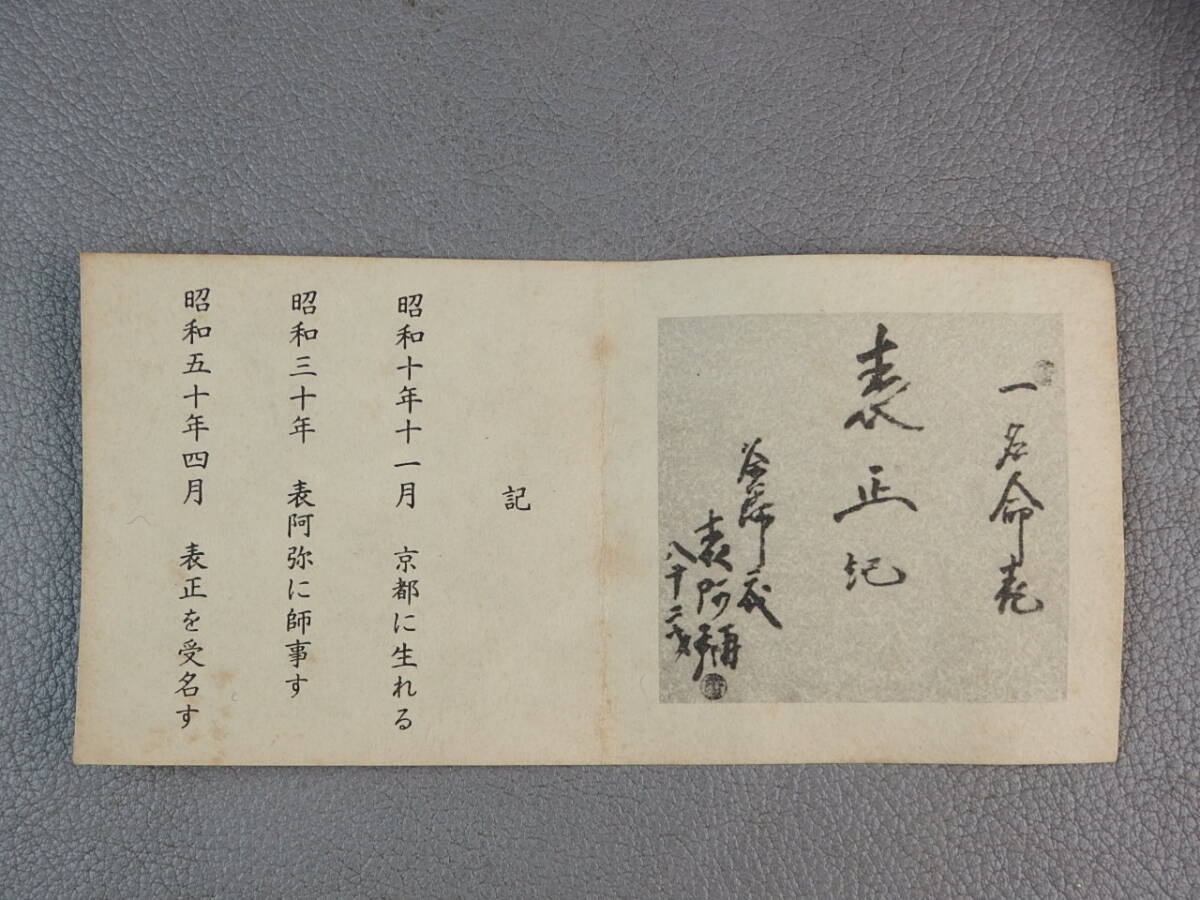 一名命
表正
表阿彌
八十二才
記
昭和十年十一月　京都に生れる
昭和三十年　表阿弥に師事す
昭和五十年四月　表正を受名す